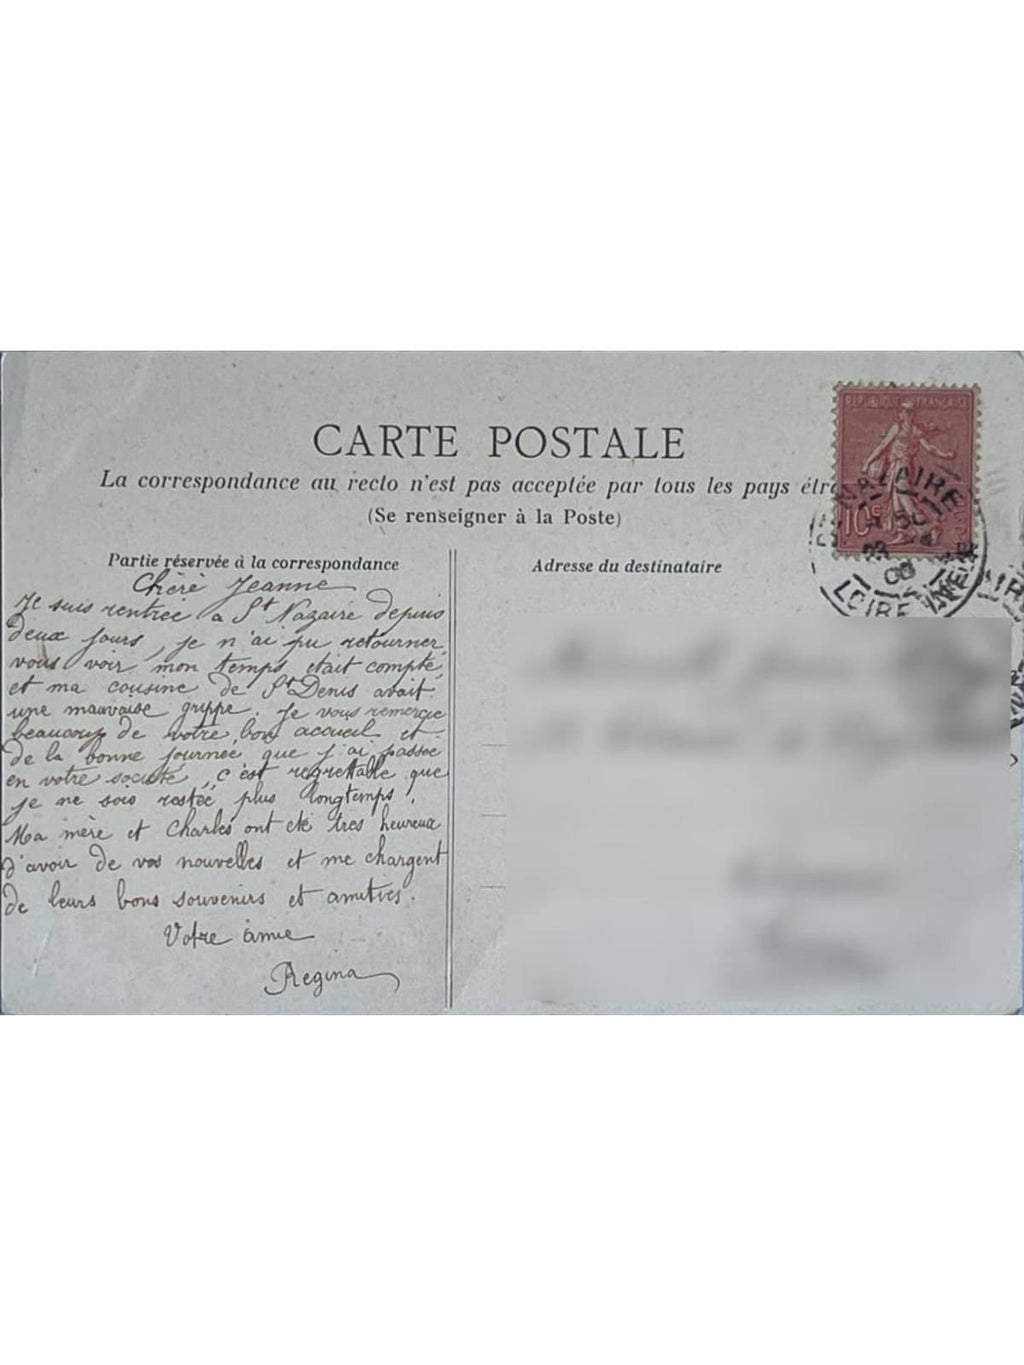 CARTE POSTALE
La correspondance au recto n'est pas acceptée par tous les pays étra
(Se renseigner à la Poste)
Partie réservée à la correspondance
Chère Jeanne
Je suis rentrée à St Nazaire depuis
deux jours, je n'ai pu retourner
vous voir, mon temps était compté,
et ma cousine de St Denis avait
une mauvaise grippe. Je vous remercie
beaucoup de votre bon accueil et
de la bonne journée que j'ai passée
en votre société, c'est regrettable que
je ne sois restée plus longtemps!
Ma mère et Charles ont été très heureux
d'avoir de vos nouvelles et me chargent
de leurs bons souvenirs et amitiés.
Votre amie
Regina
Adresse du destinataire
REPUBLIQUE FRANÇAISE
10c
NAZAIRE
08
LOIRE INFRE